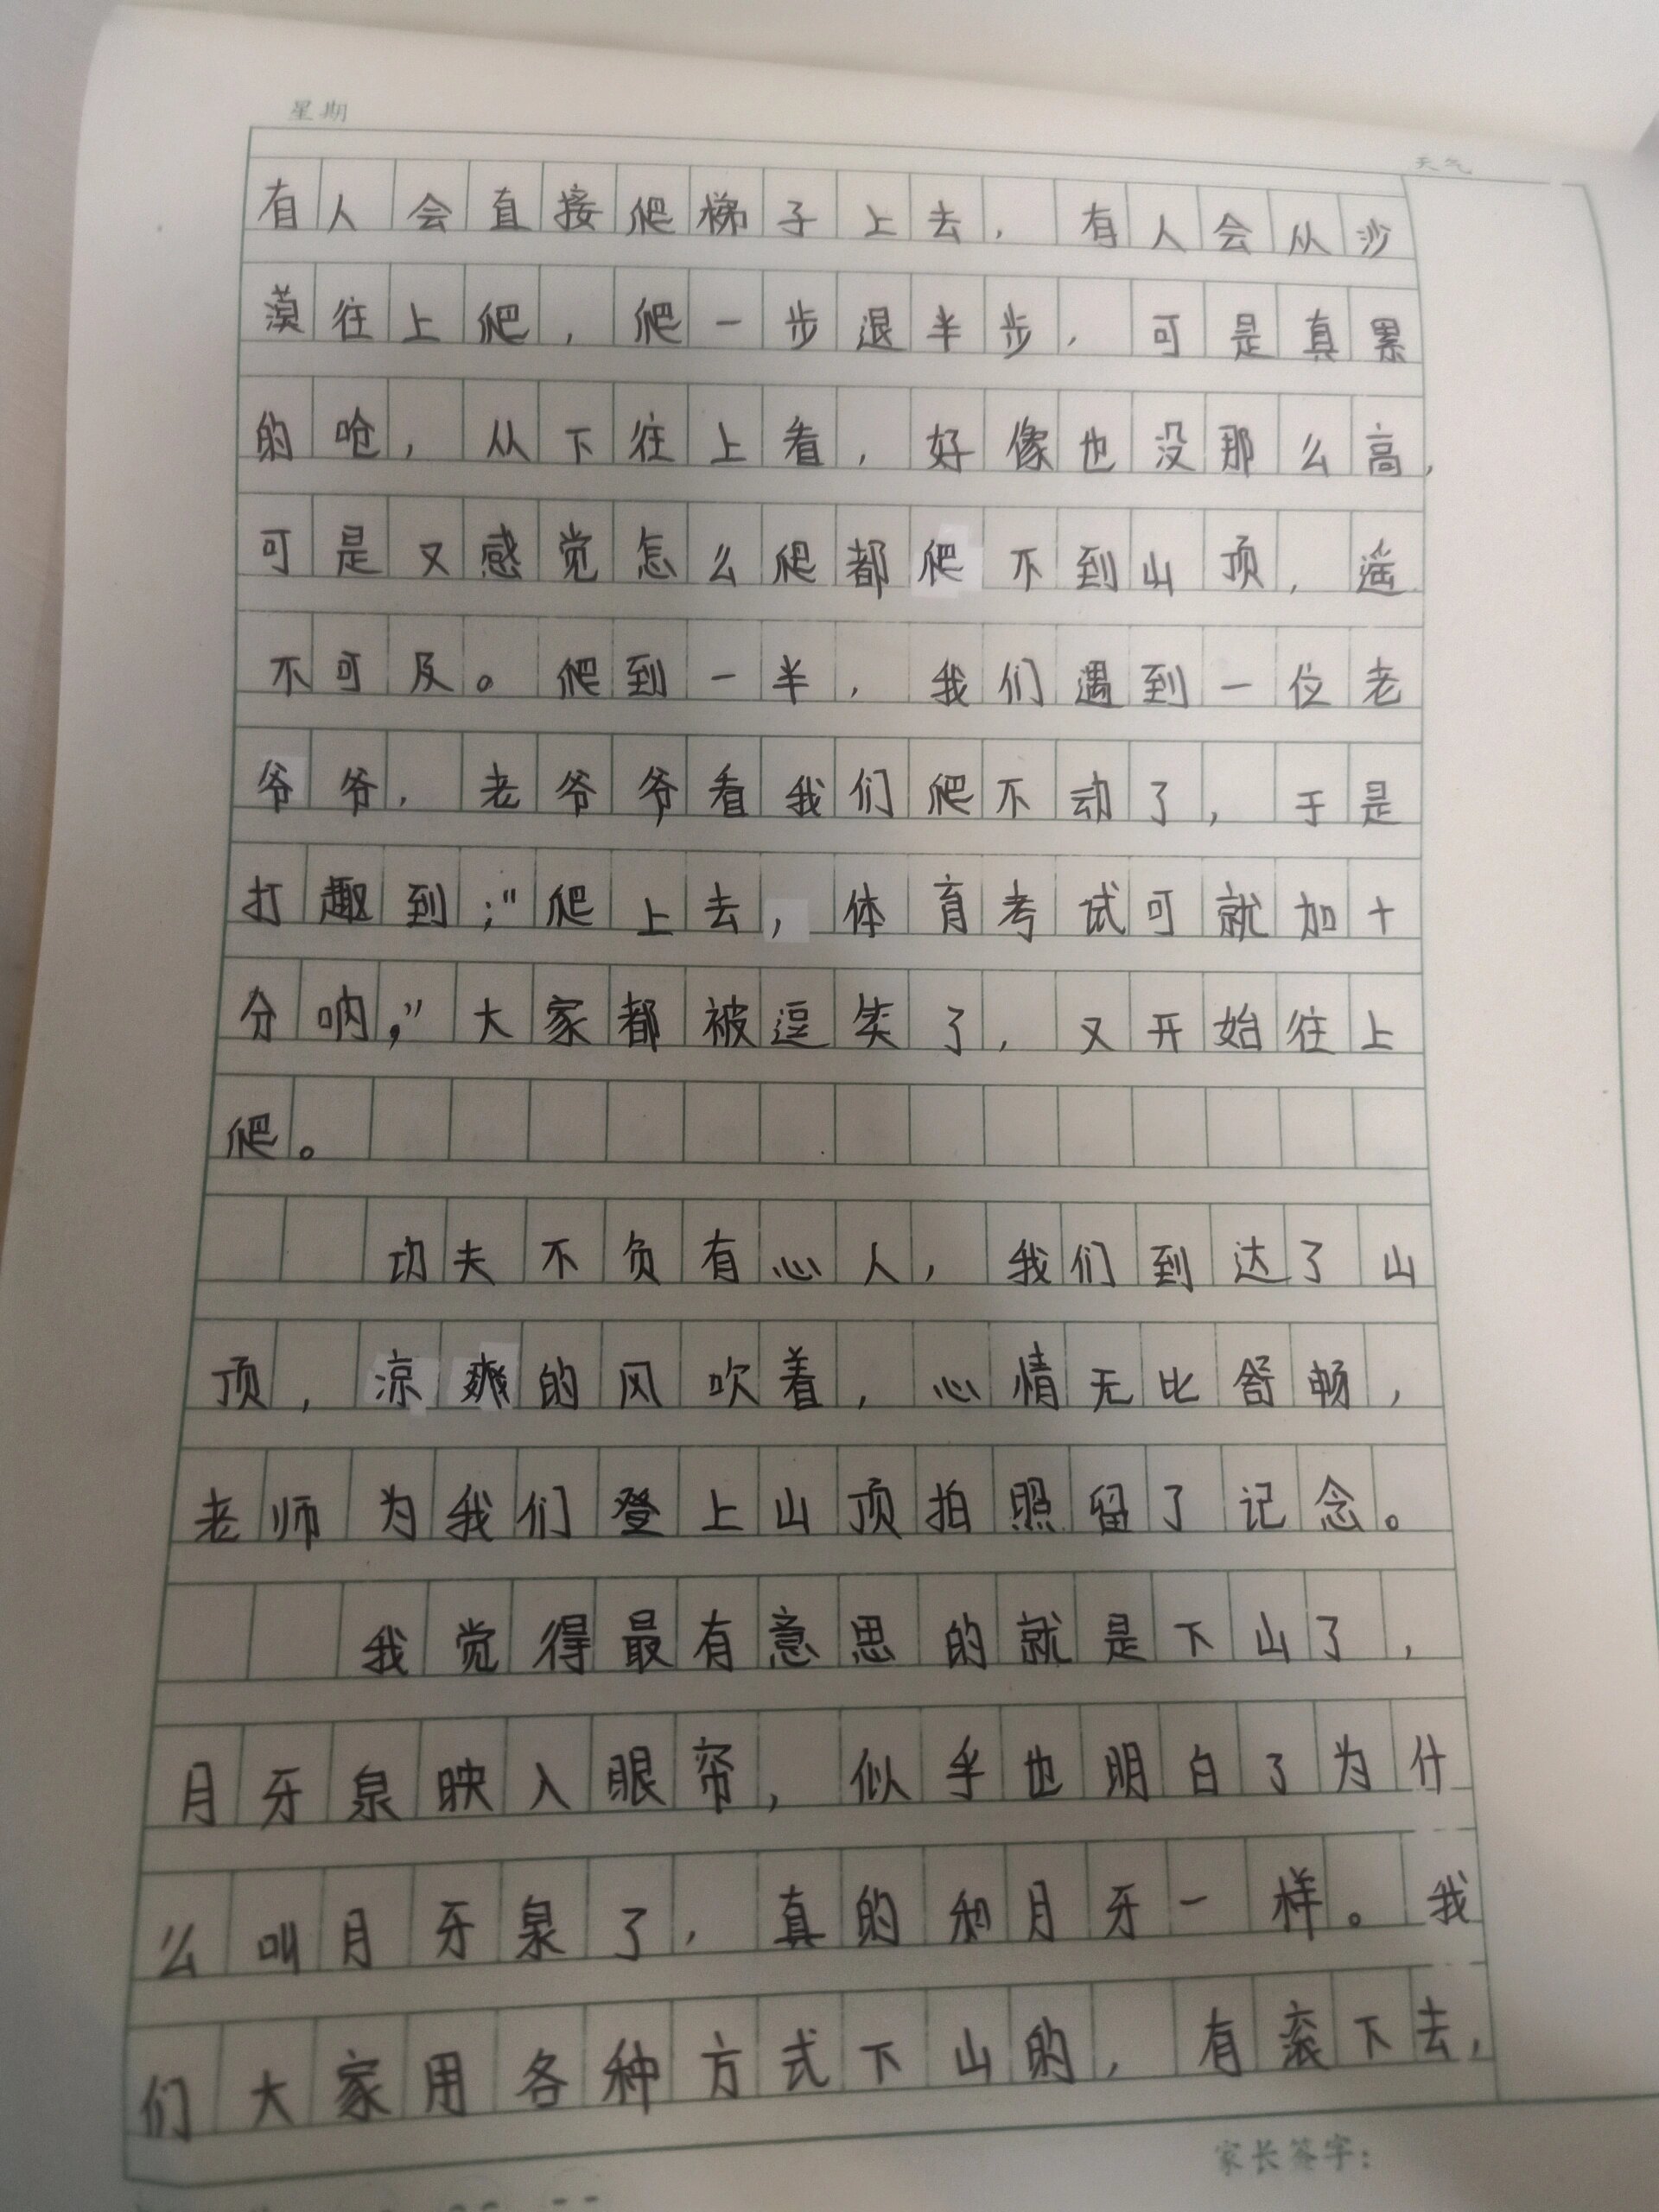 星期
天气
有人会直接爬梯子上去，有人会从沙
漠往上爬，爬一步退半步，可是真累
的呛，从下往上看，好像也没那么高，
可是又感觉怎么爬都爬不到山顶，遥
不可及。爬到一半，我们遇到一位老
爷爷，老爷爷看我们爬不动了，于是
打趣到；“爬上去，体育考试可就加十
分呐，”大家都被逗笑了，又开始往上
爬。
功夫不负有心人，我们到达了山
顶，凉爽的风吹着，心情无比舒畅，
老师为我们登上山顶拍照留了记念。
我觉得最有意思的就是下山了，
月牙泉映入眼帘，似乎也明白了为什
么叫月牙泉了，真的和月牙一样。我
们大家用各种方式下山的，有滚下去，
家长签字：